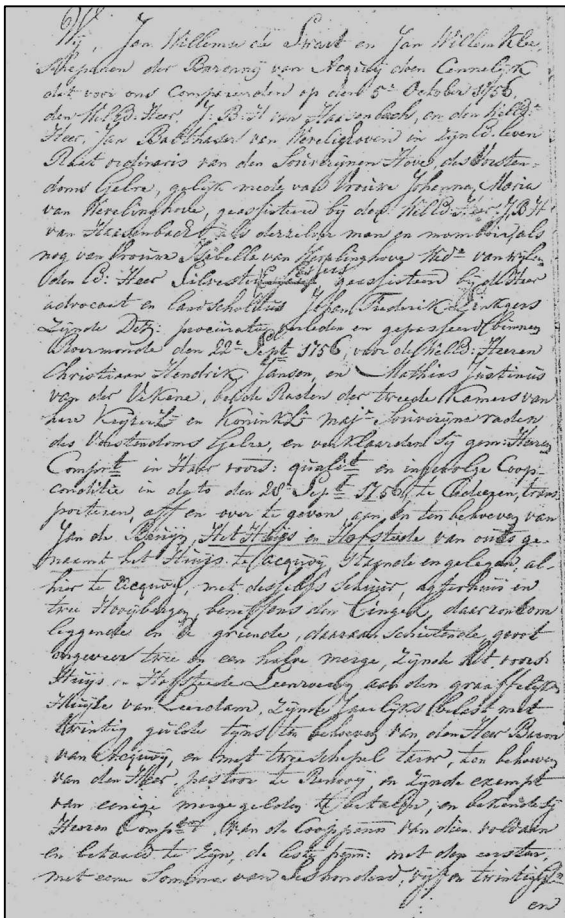 Wij, Jan Willemse de Swart en Jan Willem Klee,
Schepenen der Baronnij van Acquoij doen Connelijk
dat voor ons Compareerden op den 5e October 1756,
den Welld. Heer, J: B: H van Haesenbach, en den Welld:
Heer, Jan Balthasar van Werelighoven in zijn leven
Raet ordinaris van den Souverijnen Hove, des Vorsten-
doms Gelre, gelijk mede van Vrouwe Johanna, Maria
van Werelinghove, geassisteerd bij den Welld Heer J B H
van Haesenbach als derzelver man en momboir, als
nog van Vrouwe Isabelle van Werelinghove Wede van wijlen
den Ed: Heer Silvester geassisteerd bij de Heer
advocaet en landscholtus Johan Frederik
Zijnde Deze: procuratie verleden en gepasseerd binnen
Roermonde den 22e Sept 1756, voor de Welld: Heeren
Christiaan Hendrik Janson, en Mathias Justinus
van der Vekene, beijde Raeden der tweede Kamers van
hare Keijzerl: en Koninkl: majt Souverijne raden
des Vorstendoms Gelre, en verklaarden Sij gem: Heeren
Compten in Haer voors: qualit en ingevolge Coop-
conditie in dato den 28e Septr 1756, te Cedeeren, trans
porteren, aff en over te geven aan en ten behoeve van
Jan de Bruijn, Het Huijs en Hofstede van outs ge-
naemt het Huijs te Acquoij, staende en gelegen al-
hier te Acquoij, met desselfs Schuur, agterhuijs en
twee Hooijbergen, beneffens den Cingel, daar rondom
leggende en de griende, daaraan Schietende, groot
ongeveer twee en een halve merge, Zijnde het voors:
Huijs en Hofstede Leenroerig aan den graaffelijken
Huijse van Leerdam, Zijnde Jaerlijks belast met
twintig gulde tyns ten behoeve van den Heer Baron
van Acquoij, en met twee schepel tarw, ten behoeve
van den Heer pastoor te Renoij, en Zijnde exempt
van eenige mergegelden te betalen, en bekende Sij
Heeren Compten, van de Cooppenn van dien voldaan
en betaald te Zijn, de leste penn: met den eersten,
met eene Somma van Seshondert, vijf en twintigh
en